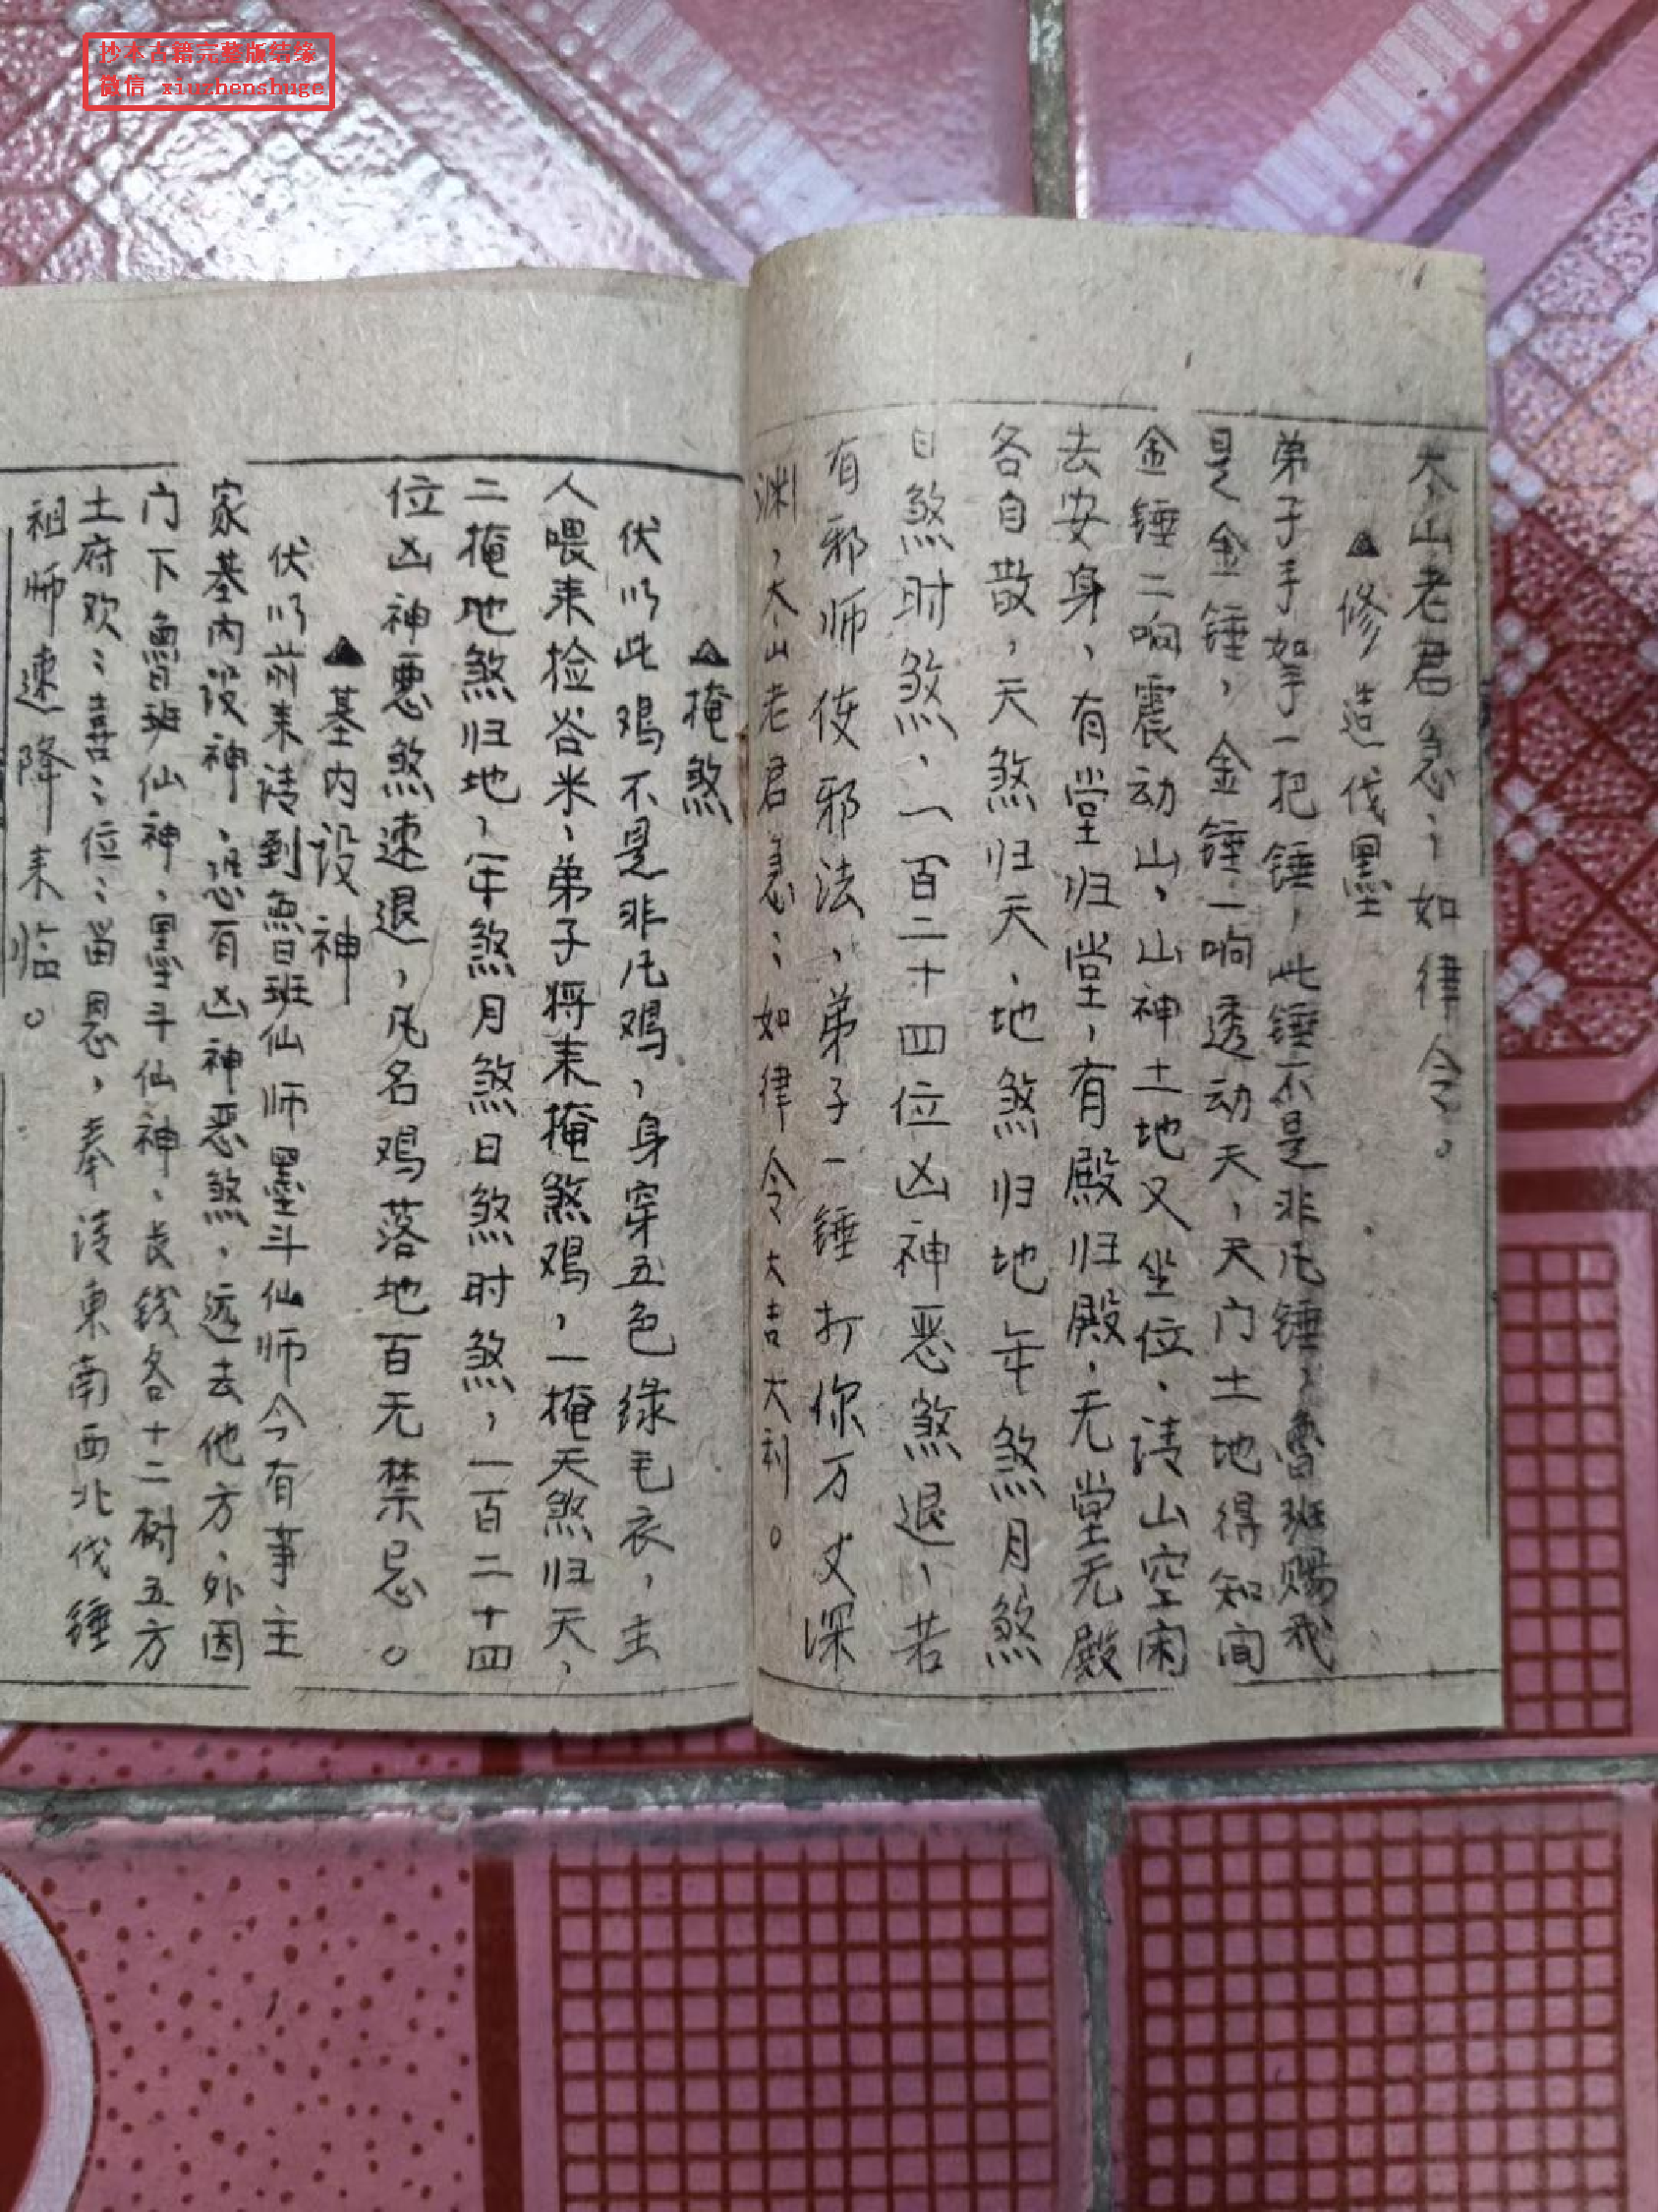 抄本古籍完整版结缘
微信 xiuzhenshuge
太山老君急〻如律令。
▲修造伐墨
弟子手如手一把锤,此锤不是非凡锤,鲁班赐我
是金锤,金锤一响透动天,天门土地得知间
金锤二响震动山,山神土地又坐位、请山空闲
去安身,有堂归堂,有殿归殿,无堂无殿
各自散,天煞归天、地煞归地年煞月煞
日煞时煞、一百二十四位凶神恶煞退,若
有邪师使邪法,弟子一锤打你万丈深
渊,太山老君急〻如律令大吉大利。
▲掩煞
伏以此鸡不是非凡鸡,身穿五色绿毛衣,主
人喂来捡谷米、弟子将来掩煞鸡,一掩天煞归天,
二掩地煞归地,年煞月煞日煞时煞,一百二十四
位凶神恶煞速退,凡名鸡落地百无禁忌。
▲基内设神
伏以前来请到鲁班仙师墨斗仙师今有事主
家基内设神、恐有凶神恶煞,远去他方、外因
门下鲁班仙神、墨斗仙神、长钱各十二树五方
土府欢〻喜〻位〻留恩,奉请东南西北伐锤
祖师速降来临。